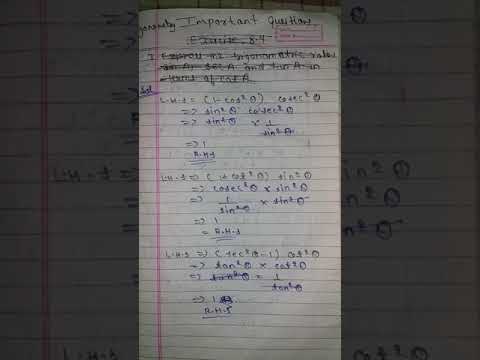 Important Question
Exercise - 8.4
1. Express the trigonometric ratios
sin A, sec A and tan A in
terms of cot A.
Sol
L.H.S = (1 - cos²θ) cosec²θ
=> sin²θ cosec²θ
=> sin²θ × 1/sin²θ
=> 1
R.H.S
L.H.S => (1+ cot²θ) sin²θ
=> cosec²θ × sin²θ
=> 1/sin²θ × sin²θ
=> 1
= R.H.S
L.H.S => (sec²θ - 1) cot²θ
=> tan²θ × cot²θ
=> tan²θ = 1/tan²θ
=> 1
R.H.S